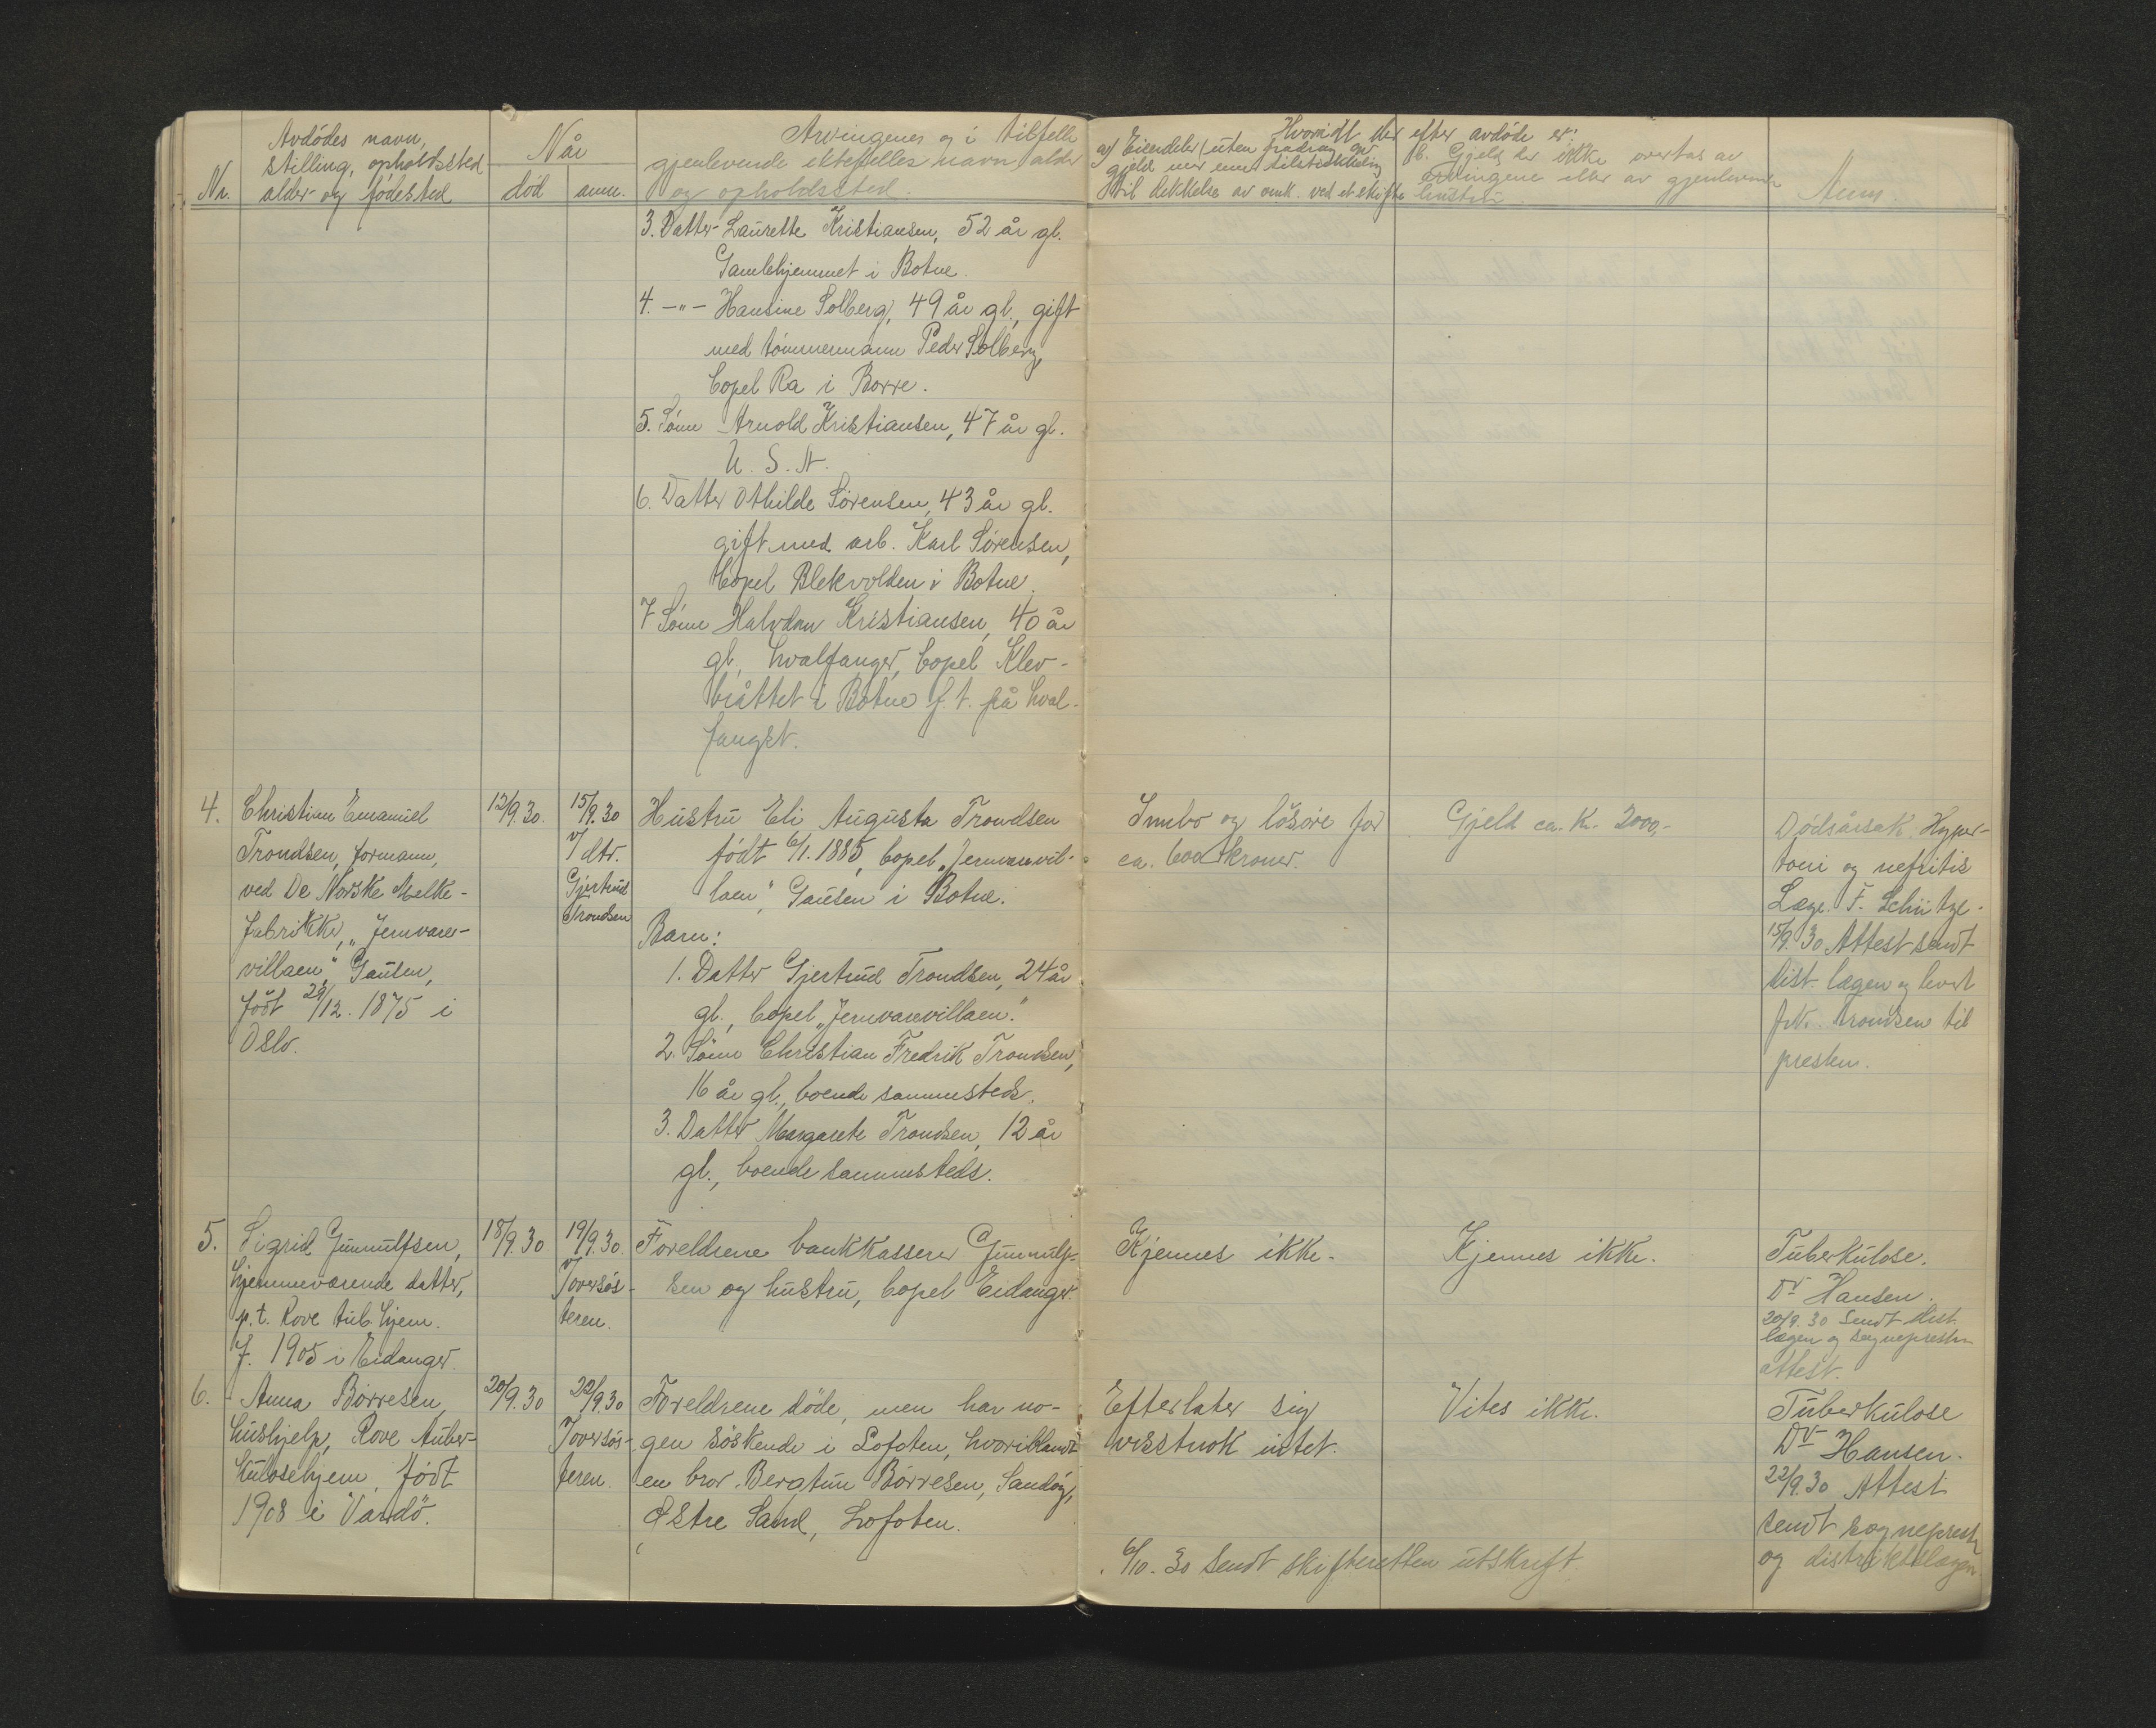 Avdödes navn,
stilling, opholdssted
alder og fødested
Nr.
Når
død
anm.
Arvingenes og i tilfelle
gjenlevende ektefelles navn, alder
og opholdssted.
Hvorvidt der efter avdøde er:
a) Eiendeler (uten fradrag av
gjeld mer enn tilstrekkelig
til dekkelse av omk. ved et skifte
b. Gjeld der ikke overtas av
arvingene eller av gjenlevende
hustru.
Anm.
3. Datter Laurette Kristiansen, 52 år gl.
Gamlehjemmet i Botne.
4. -"- Hansine Solberg, 49 år gl., gift
med tömmermann Peder Solberg,
bopel Ra i Borre.
5. Sönn Arnold Kristiansen, 47 år gl.
U. S. A.
6. Datter Othilde Sörensen, 43 år gl.
gift med arb. Karl Sörensen,
bopel Blekvolden i Botne.
7 Sönn Halvdan Kristiansen, 40 år
gl., hvalfanger, bopel Klev-
bråttet i Botne f. t. på hval-
fangst.
4.
Christian Emanuel
Trondsen, formann,
ved De Norske Melke-
fabrikker, „Jernvare-
villaen" Gausen,
født 28/12. 1875 i
Oslo.
12/9.30.
15/9.30
v/ dtr.
Gjertrud
Trondsen
Hustru Eli Augusta Trondsen
født 6/1. 1885, bopel „Jernvarevil-
laen", Gausen i Botne.
Barn:
1. Datter Gjertrud Trondsen, 24 år
gl., bopel „Jernvarevillaen."
2. Sönn Christian Fredrik Trondsen,
16 år gl., boende sammesteds.
3. Datter Margarete Trondsen, 12 år
gl., boende sammesteds.
Innbo og lösöre for
ca. 600 kroner.
Gjeld ca. kr. 2000,-
Dødsårsak: Hyper-
toni og nefritis
Læge. F. Schütze.
15/9.30 Attest sendt
dist. lægen og levert
frk. Trondsen til
presten.
5.
Sigrid Gunnulfsen,
hjemmeværende datter,
p.t. Rove tub. hjem.
f. 1905 i Eidanger.
18/9.30
19/9.30.
v/ oversös-
teren.
Foreldrene bankkasserer Gunnulf-
sen og hustru, bopel Eidanger.
Kjennes ikke.
Kjennes ikke.
Tuberkulose.
Dr Hansen.
20/9.30 Sendt dist.
lægen og sognepresten
attest.
6.
Anna Börresen,
hushjelp, Rove tuber-
kulosehjem, født
1908 i Vardö.
20/9.30
22/9.30
v/ oversös-
teren.
Foreldrene döde, men har no-
gen söskende i Lofoten, hvoriblandt
en bror Bergtun Börresen, Sandöy,
Østre Sand, Lofoten.
Efterlater sig
visstnok intet.
Vites ikke.
Tuberkulose
Dr Hansen.
22/9.30 Attest
sendt sogneprest
og distriktslægen.
6/10.30 Sendt skifteretten utskrift.